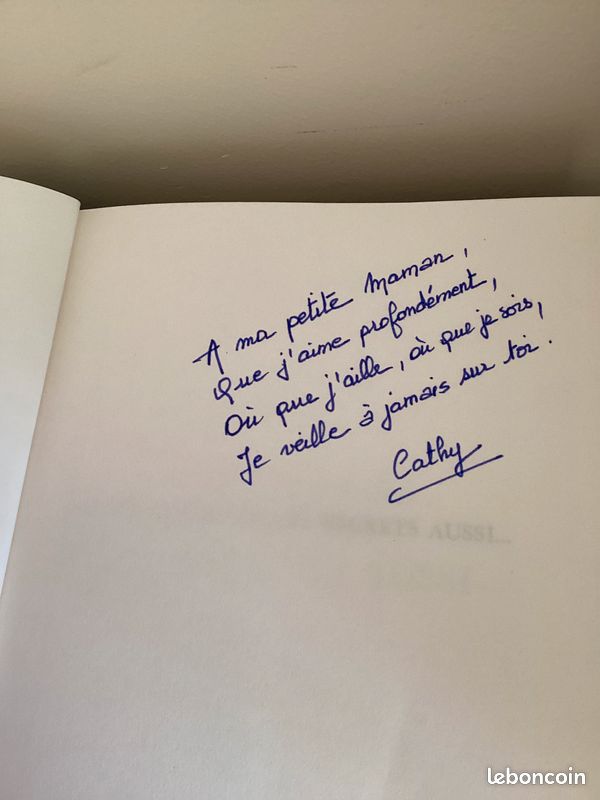 A ma petite Maman,
Que j'aime profondément,
Où que j'aille, où que je sois,
Je veille à jamais sur toi.
Cathy
AUSSI...
leboncoin